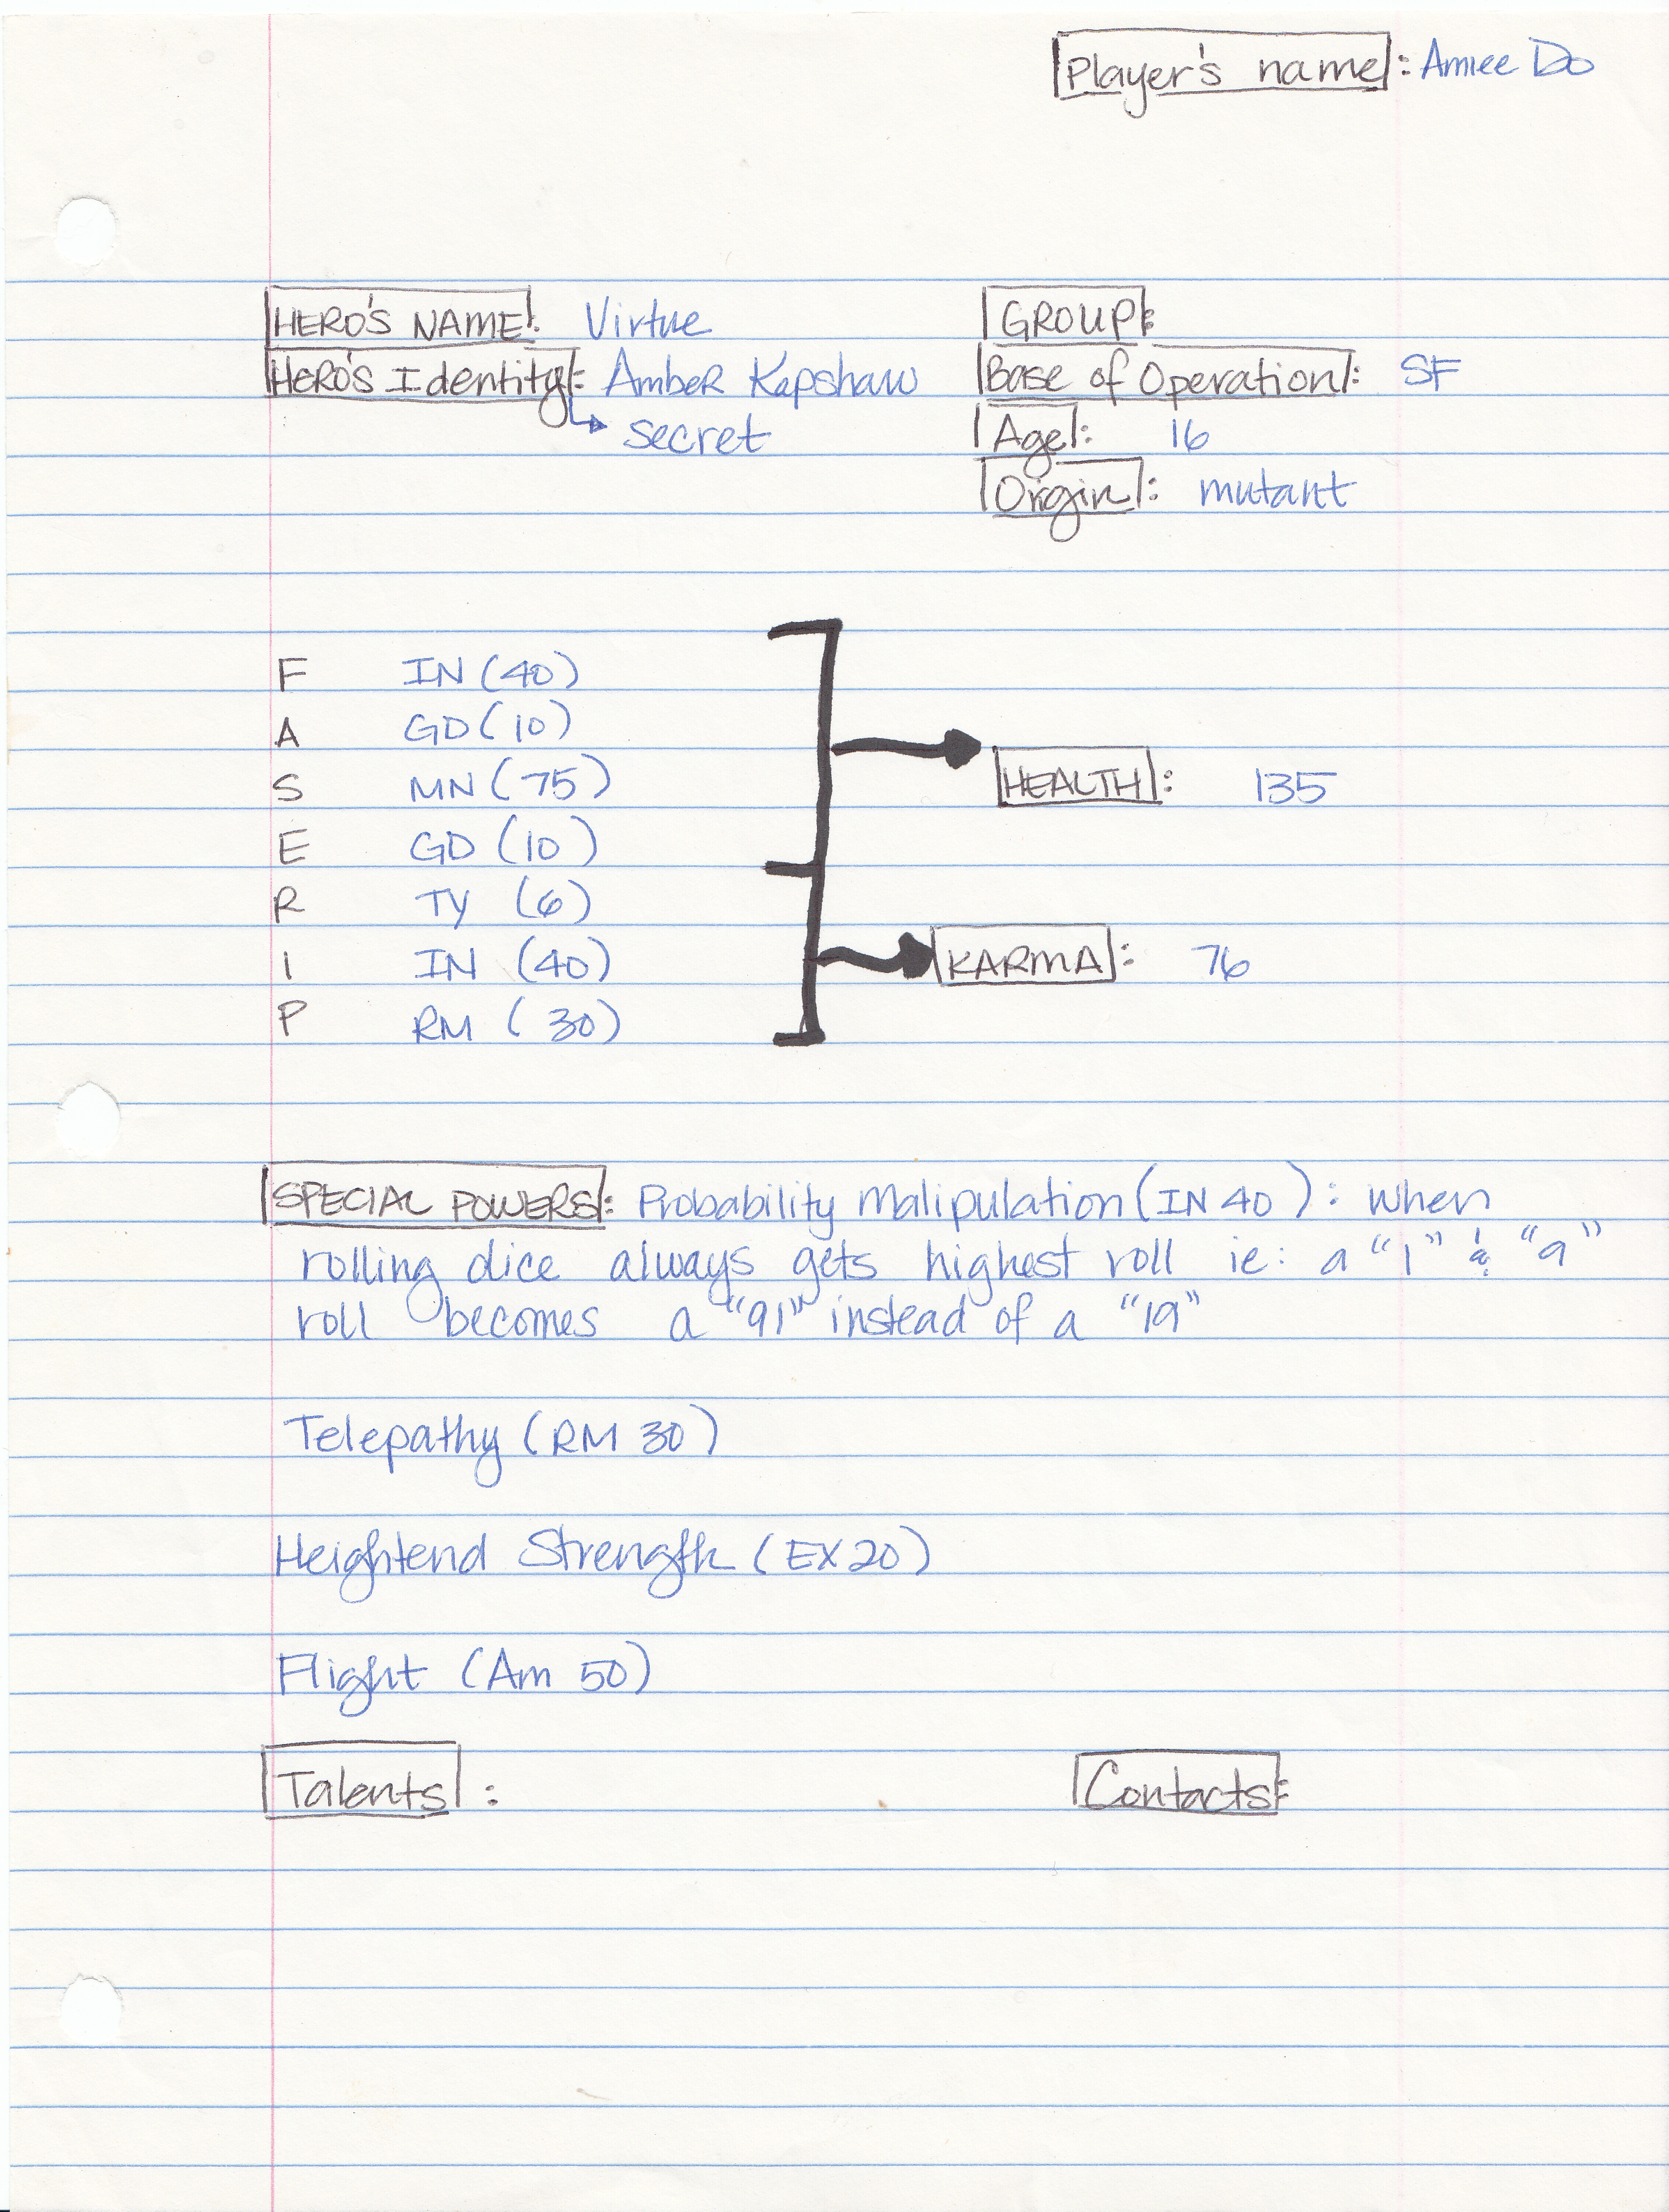 Player's name: Amiee Do
HERO'S NAME: Virtue
GROUP:
HERO'S Identity: Amber Kapshaw
Base of Operation: SF
secret
Age: 16
Orgin: mutant
F IN (40)
A GD (10)
S MN (75)
HEALTH: 135
E GD (10)
R TY (6)
I IN (40)
KARMA: 76
P RM (30)
SPECIAL POWERS: Probability Malipulation (IN 40): when
rolling dice always gets highest roll ie: a "1" & "9"
roll becomes a "91" instead of a "19"
Telepathy (RM 30)
Heightend Strength (EX 20)
Flight (Am 50)
Talents:
Contacts: